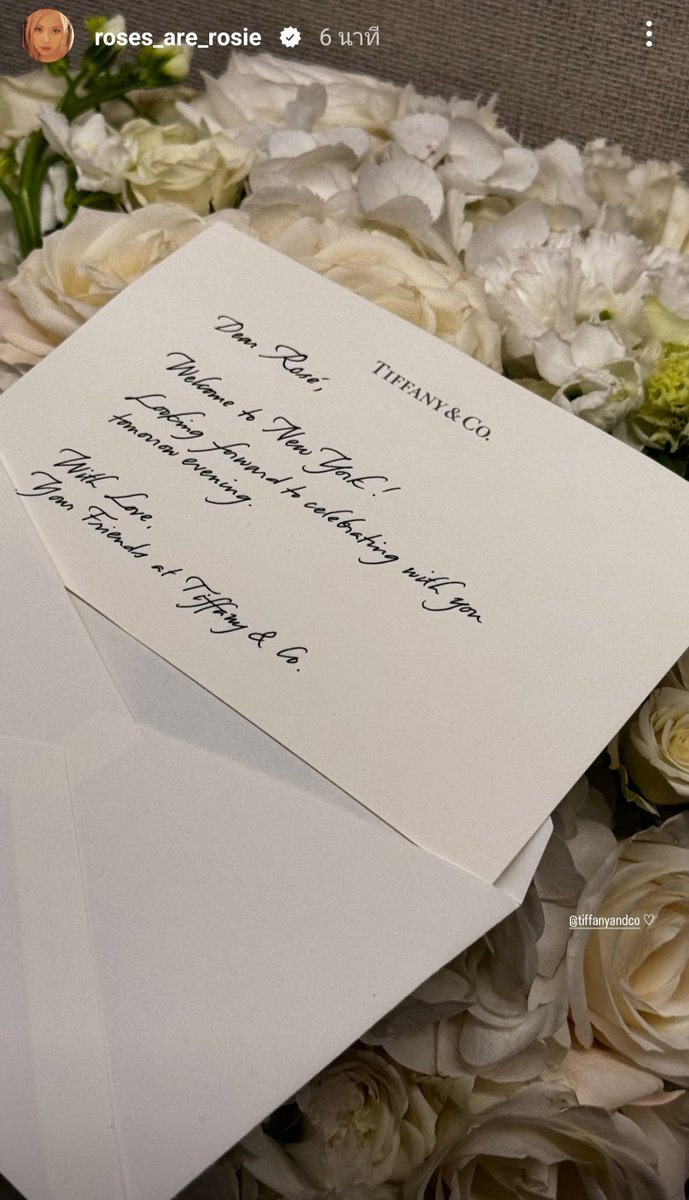 roses_are_rosie 6 นาที
TIFFANY & CO.
Dear Rosé,
Welcome to New York!
Looking forward to celebrating with you
tomorrow evening.
With Love,
Your Friends at Tiffany & Co.
@tiffanyandco ♡